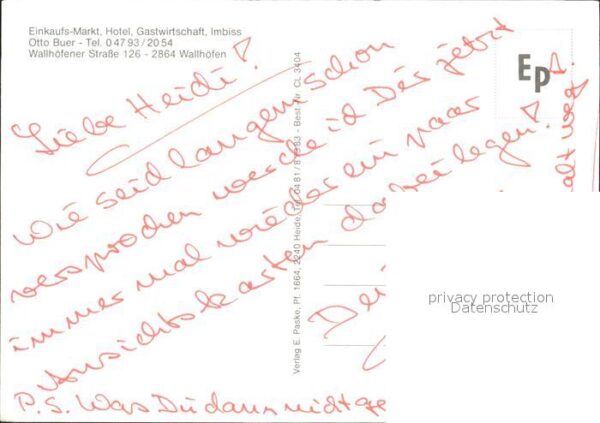 Einkaufs-Markt, Hotel, Gastwirtschaft, Imbiss
Otto Buer - Tel. 0 47 93 / 20 54
Wallhöfener Straße 126 - 2864 Wallhöfen
Liebe Heidi!
Wie seid langem, schon
versprochen werde id Dir jetzt
immer mal wieder ein paar
Ansichtskarten dabei legen!
P.S. Was Du dann nicht
Verlag E. Paske, Pf. 1664, 2240 Heide, Tel. 0481/8 - Best.-Nr. CL 3404
EP
privacy protection
Datenschutz